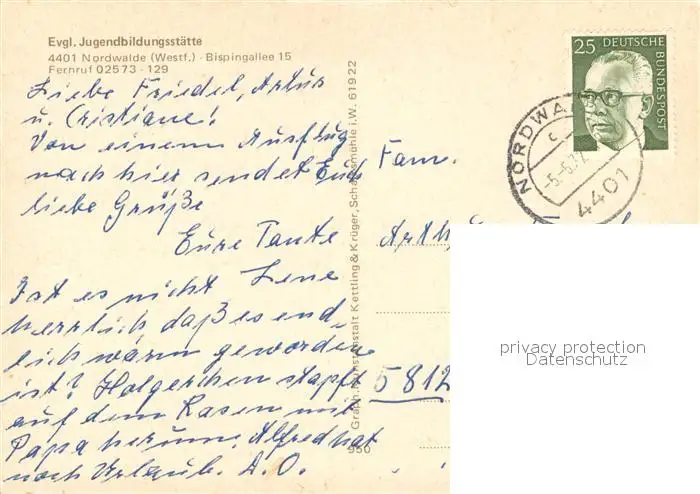 Evgl. Jugendbildungsstätte
4401 Nordwalde (Westf.) · Bispingallee 15
Fernruf 02573 - 129
Liebe Friedel, Artur
u. Cristiane!
Von einem Ausflug
nach hier sendet Euch
liebe Grüße
Eure Tante
Lene
Ist es nicht
herrlich, daß es end-
lich warm geworden
ist? Holgerchen stapft
auf dem Rasen mit
Papa herum. Alfred hat
noch Urlaub. D. O.
Graph. Kunstanstalt Kettling & Krüger, Schalksmühle i. W. 61922
950
25 DEUTSCHE
BUNDESPOST
NORDWAL
c
-5.-6.72
4401
Fam.
5812
privacy protection
Datenschutz